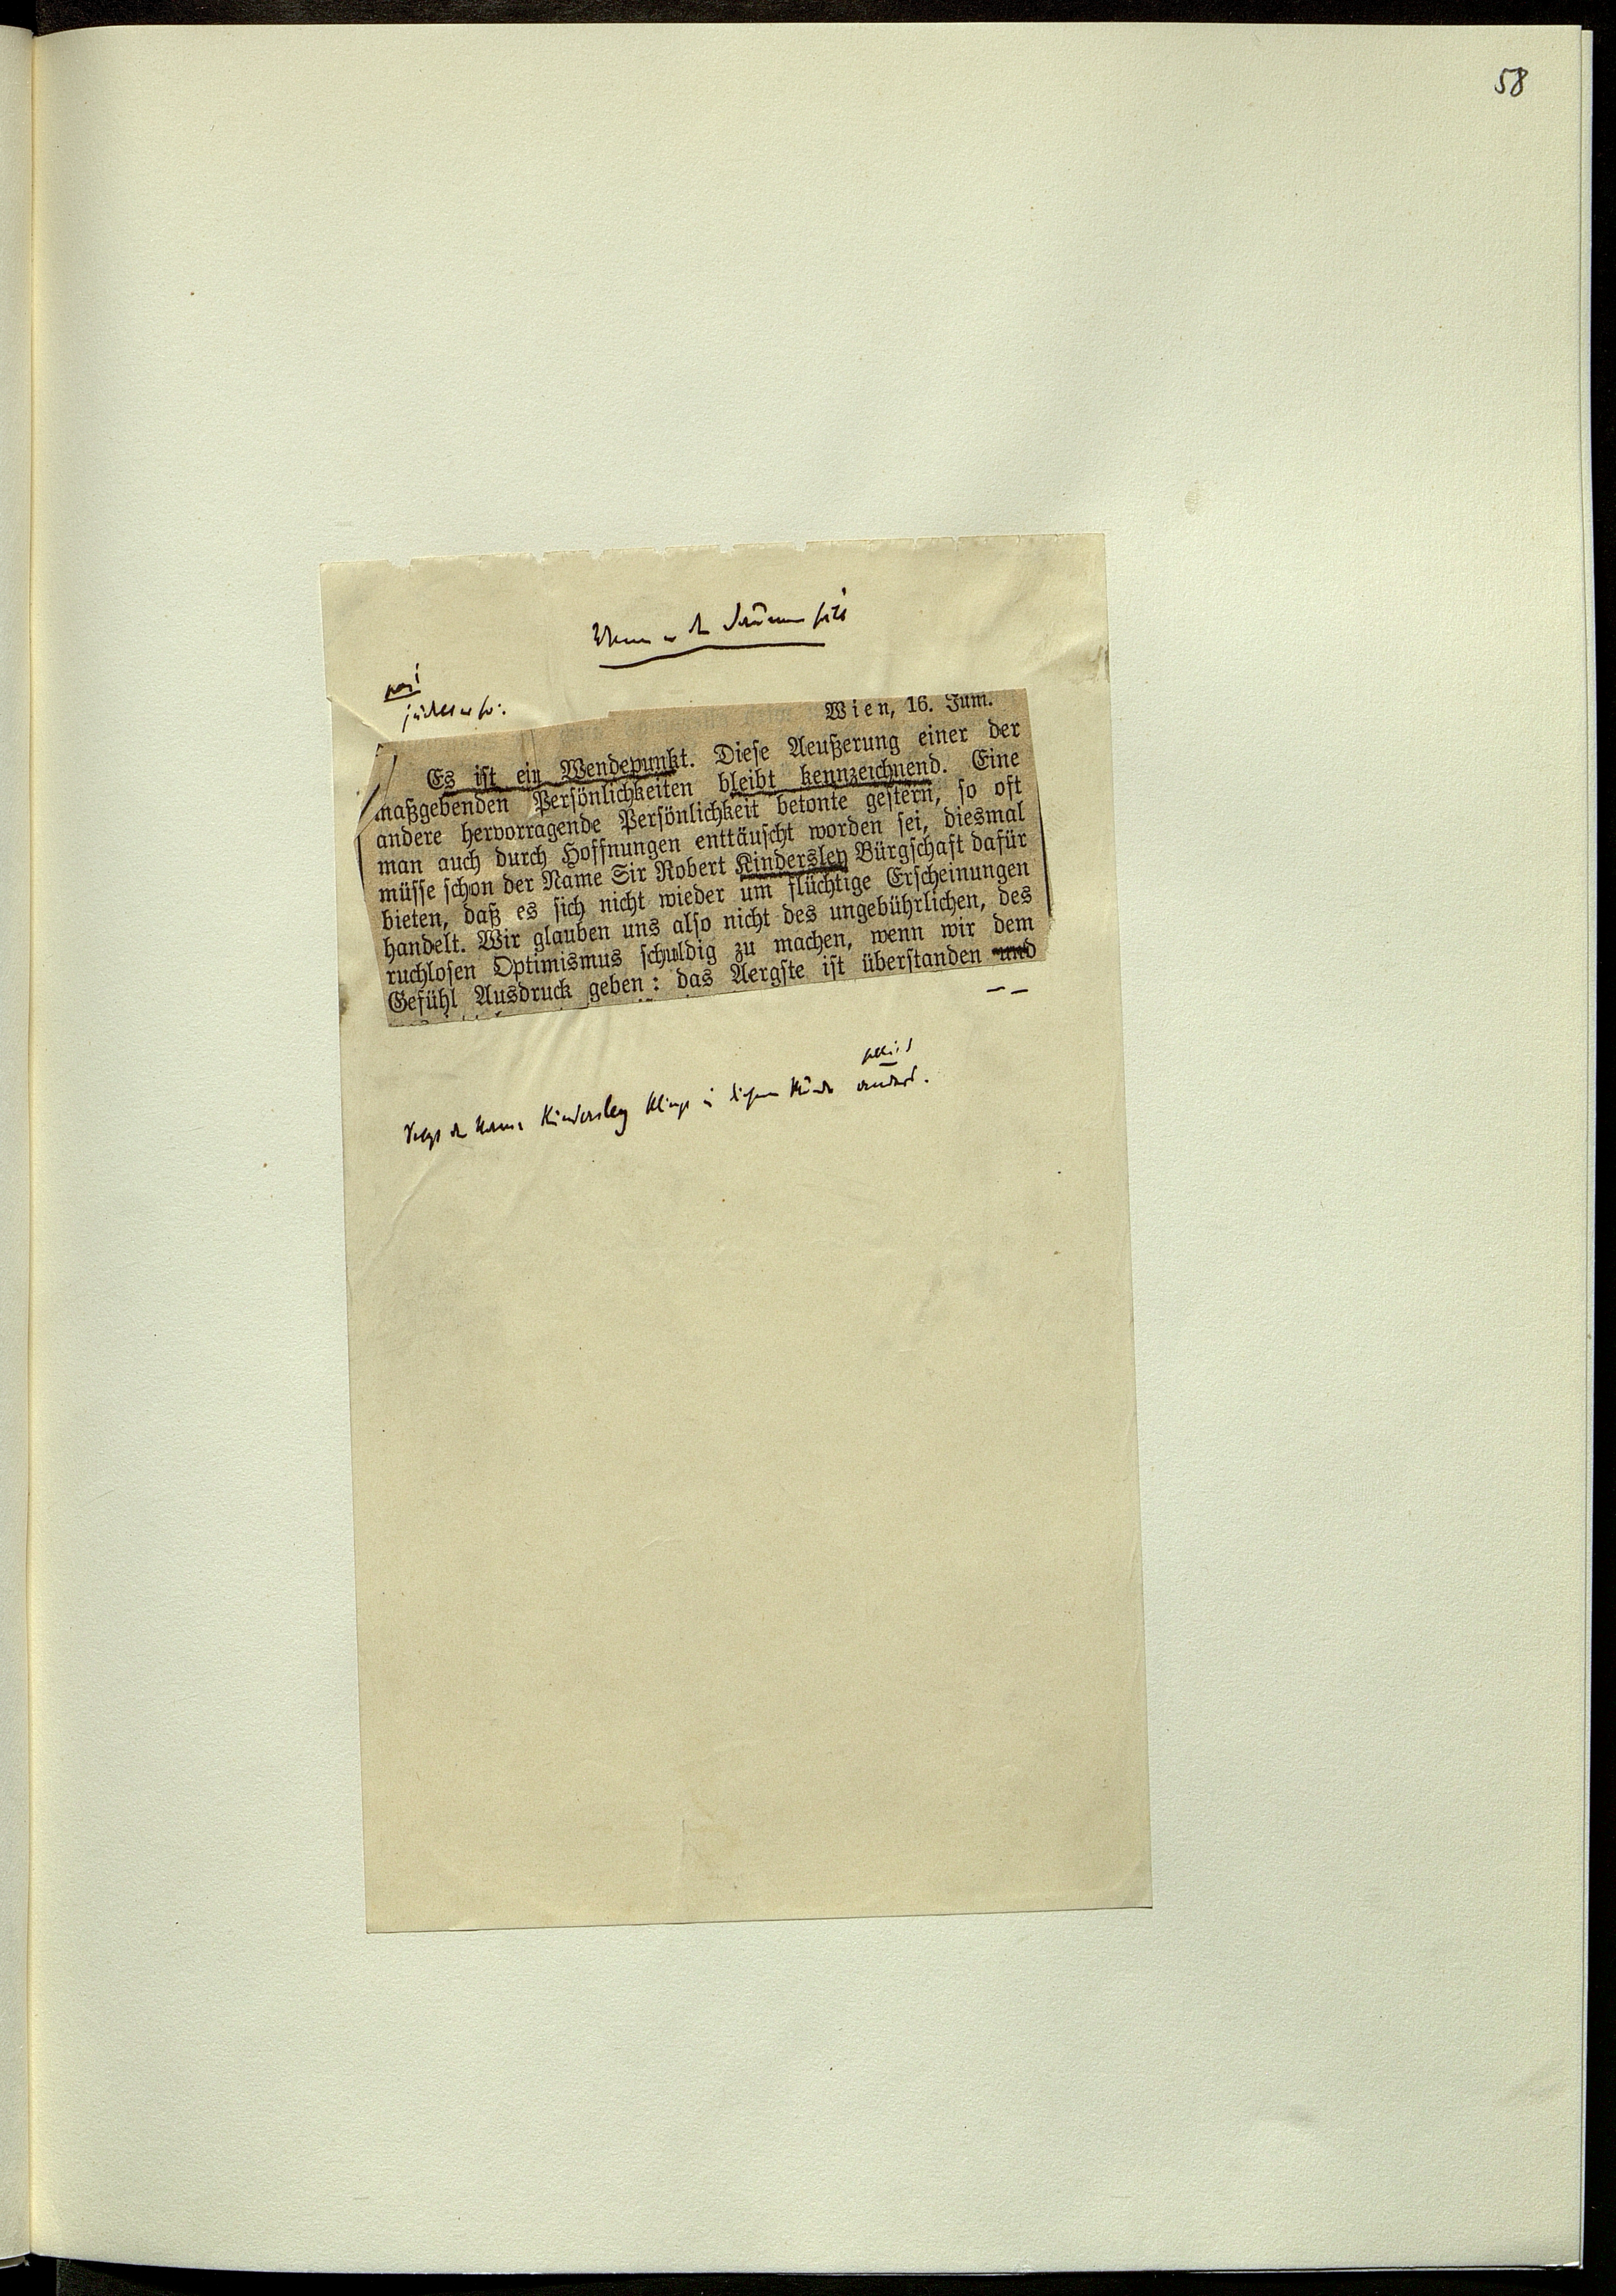 58
jüdelt er so:
Wien, 16. Juni.
Es ist ein Wendepunkt. Diese Aeußerung einer der
maßgebenden Persönlichkeiten bleibt kennzeichnend. Eine
andere hervorragende Persönlichkeit betonte gestern, so oft
man auch durch Hoffnungen enttäuscht worden sei, diesmal
müsse schon der Name Sir Robert Kindersley Bürgschaft dafür
bieten, daß es sich nicht wieder um flüchtige Erscheinungen
handelt. Wir glauben uns also nicht des ungebührlichen, des
ruchlosen Optimismus schuldig zu machen, wenn wir dem
Gefühl Ausdruck geben: das Aergste ist überstanden und
— —
Selbst der Name Kindersley klingt in diesem Munde